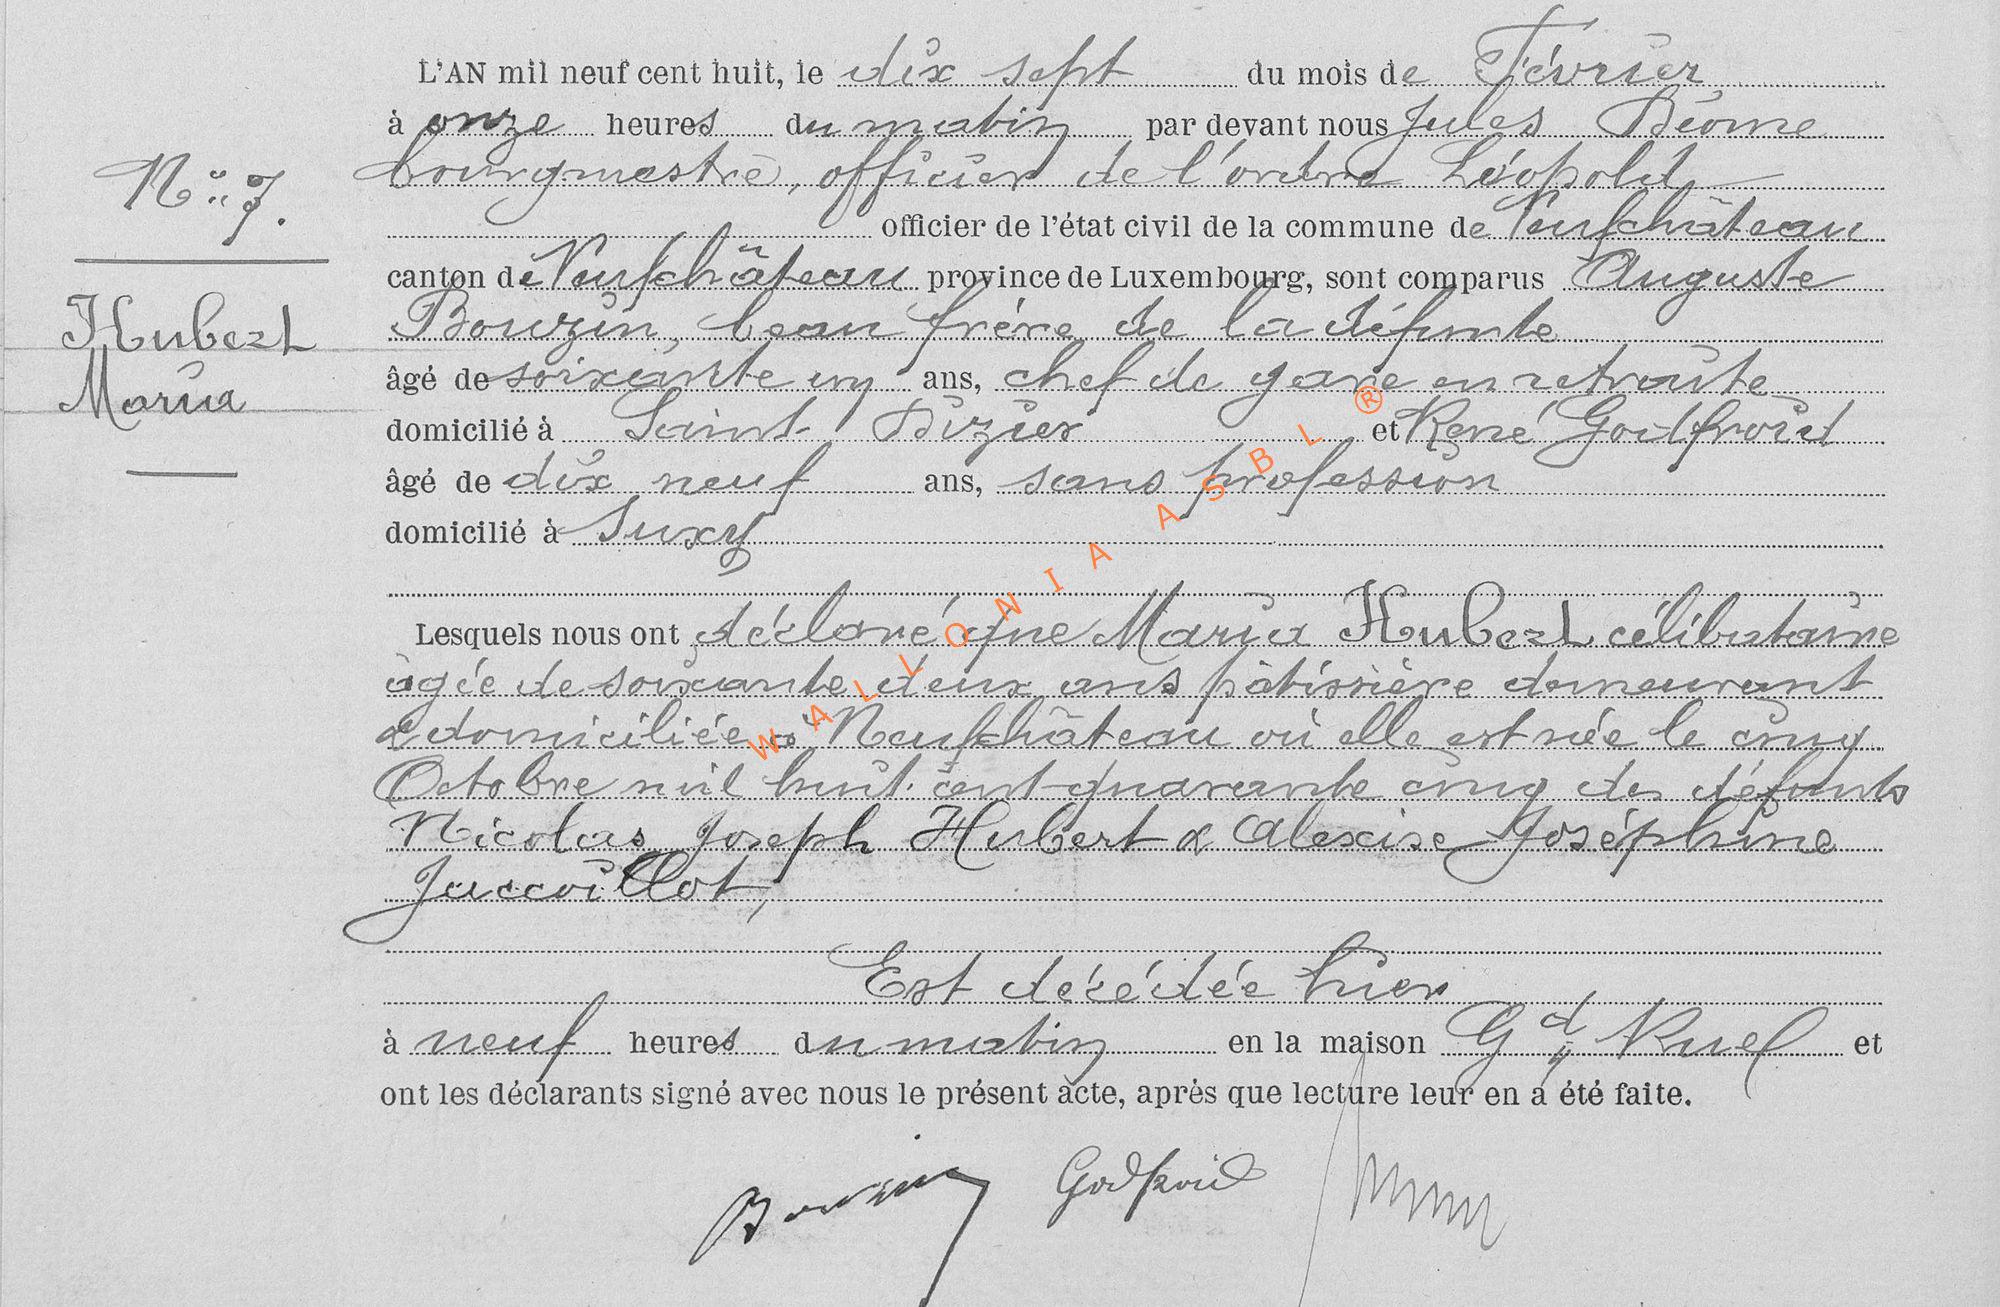 L'AN mil neuf cent huit, le dix sept du mois de Février
à onze heures du matin par devant nous Jules
bourgmestre, officier de l'ordre Léopold
officier de l'état civil de la commune de Neufchâteau
N° 7.
canton de Neufchâteau province de Luxembourg, sont comparus Auguste
Bouzin, beau frère de la défunte
Hubert
Maria
âgé de soixante un ans, chef de gare en retraite
domicilié à Saint Dizier et René Godfroid
âgé de dix neuf ans, sans profession
domicilié à Suxy
Lesquels nous ont déclaré que Maria Hubert célibataire
âgée de soixante deux ans pâtissière demeurant
& domiciliée à Neufchâteau où elle est née le cinq
Octobre mil huit cent quarante cinq des défunts
Nicolas Joseph Hubert & Alexise Joséphine
Jaccoillot,
Est décédée hier
à neuf heures du matin en la maison Gd Rue et
ont les déclarants signé avec nous le présent acte, après que lecture leur en a été faite.
Bouzin Godfroid
WALLONIA ASBL ®